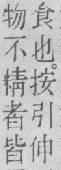 食也。按引伸
物不精者皆